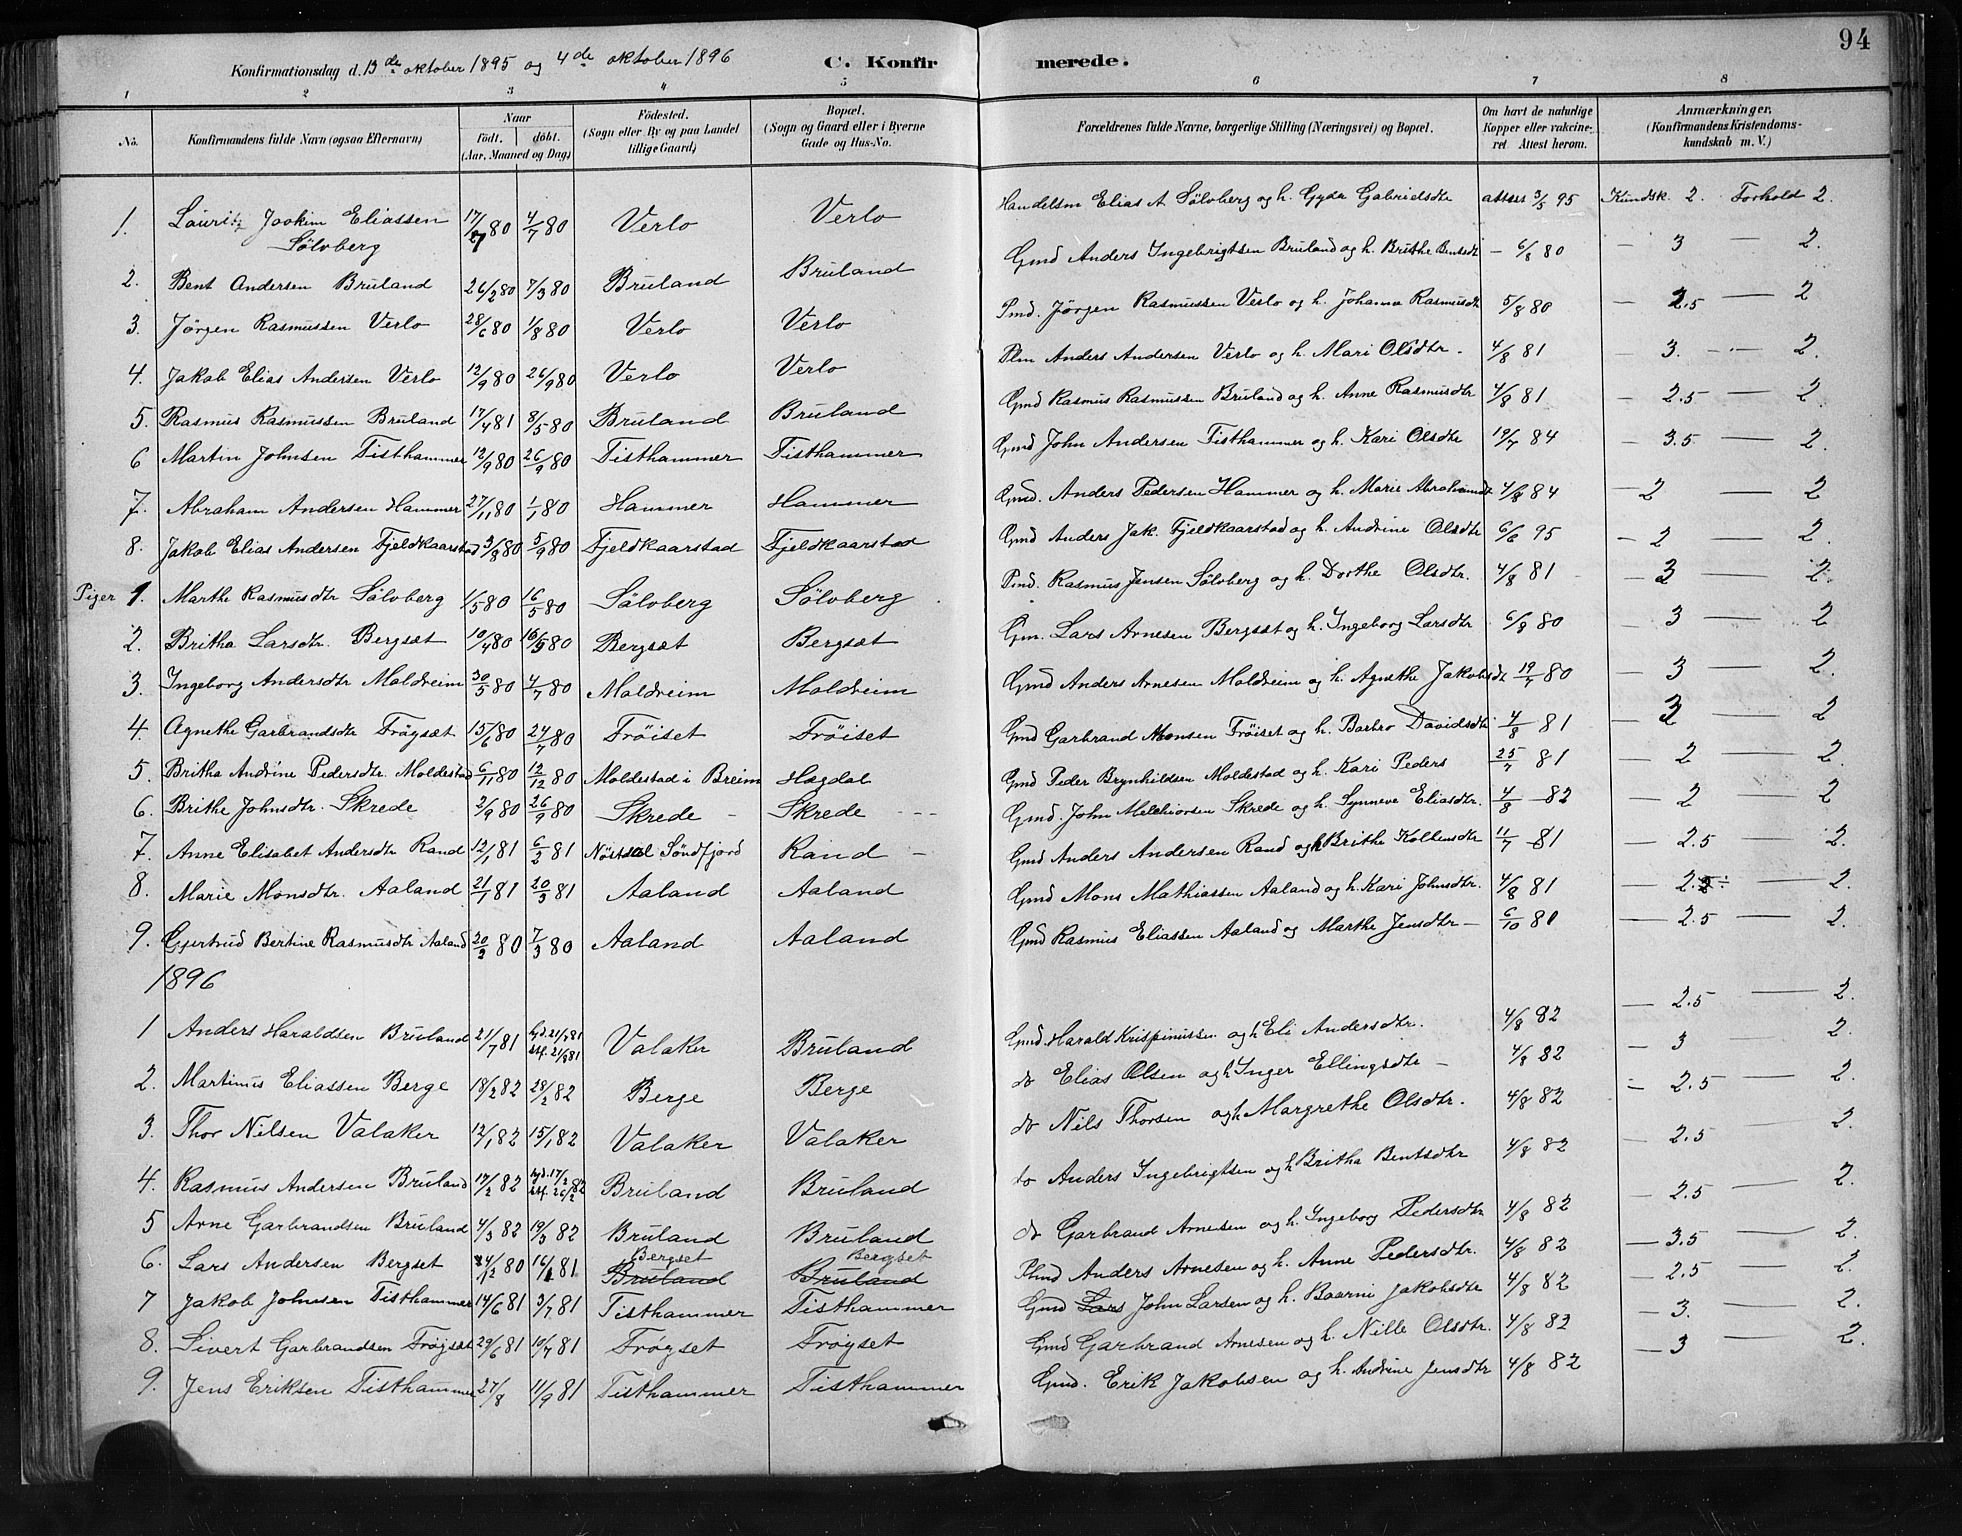 94
Konfirmationsdag d. 13de oktober 1895 og 4de oktober 1896 C. Konfirmerede.
1 2 3 4 5 6 7 8
No. Konfirmandens fulde Navn (ogsaa Efternavn) Naar født. døbt. (Aar, Maaned og Dag) Fødested. (Sogn eller By og paa Landet tillige Gaard) Bopæl. (Sogn og Gaard eller i Byerne Gade og Hus-No. Forældrenes fulde Navne, borgerlige Stilling (Næringsvei) og Bopæl. Om havt de naturlige Kopper eller vakcineret. Attest herom. Anmærkninger, (Konfirmandens Kristendomskundskab m. V.)
1. Lauritz Joakim Eliassen Sølvberg 17/2 80 4/7 80 Verlo Verlo Handelsm Elias A Sølvberg og h. Gyda Gabrielsdtr attest 3/5 95 Kundsk. 2. Forhold 2.
2. Bent Andersen Bruland 26/2 80 7/3 80 Bruland Bruland Gmd Anders Ingebrigtsen Bruland og h. Brithe Bentsdt – 6/8 80 — 3 — 2.
3. Jørgen Rasmussen Verlo 28/6 80 1/8 80 Verlo Verlo Pmd. Jørgen Rasmussen Verlo og h. Johanna Rasmusdt 5/8 80 — 2.5 — 2
4. Jakob Elias Andersen Verlo 12/9 80 26/9 80 Verlo Verlo Plm Anders Andersen Verlo og h. Mari Olsdtr. 4/8 81 — 3. — 2.
5. Rasmus Rasmussen Bruland 17/4 81 8/5 80 Bruland Bruland Gmd Rasmus Rasmussen Bruland og h. Anne Rasmusdtr 4/8 81 — 2.5 — 2.
6 Martin Johnsen Tisthammer 12/9 80 26/9 80 Tisthammer Tisthammer Gmd John Andersen Tisthammer og h. Kari Olsdtr 19/7 84 — 3.5 — 2.
7. Abraham Andersen Hammer 27/11 80 1/1 80 Hammer Hammer Gmd. Anders Pedersen Hammer og h. Marie Abrahamsdt 4/8 84 — 2 — 2
8. Jakob Elias Andersen Fjeldkaarstad 3/8 80 5/9 80 Fjeldkaarstad Fjeldkaarstad Gmd Anders Jak. Fjeldkaarstad og h. Andrine Olsdtr 6/6 95 — 2 — 2.
Piger 1. Marthe Rasmusdtr Sølvberg 1/5 80 16/5 80 Sølvberg Sølvberg Pmd. Rasmus Jensen Sølvberg og h. Dorthe Olsdtr. 4/8 81 — 3 — 2.
2. Britha Larsdtr. Bergsæt 10/4 80 16/5 80 Bergsæt Bergsæt Gm. Lars Arnesen Bergsæt og h. Ingeborg Larsdtr 6/8 80 — 3 — 2
3. Ingeborg Andersdtr Moldreim 30/5 80 4/7 80 Moldreim Moldreim Gmd Anders Arnesen Moldreim og h. Agnethe Jakobsdt 19/7 80 — 3 — 2.
4. Agnethe Garbrandsdtr Frøysæt 15/6 80 24/7 80 Frøiset Frøiset Gmd Garbrand Monsen Frøiset og h. Barbro Davidsdtr 4/8 81 — 3 — 2
5. Britha Andrine Pedersdtr. Moldestad 6/11 80 12/12 80 Moldestad i Breim Hægdal Gmd Peder Brynhildsen Moldestad og h. Kari Peders 25/7 81 — 2 — 2.
6. Brithe Johnsdtr. Skrede 2/9 80 26/9 80 Skrede Skrede Gmd. John Melchiorsen Skrede og h. Synneve Eliasdtr. 4/8 82 — 2 — 2
7. Anne Elisabet Andersdtr Rand 12/1 81 6/2 81 Nøstdal Søndfjord Rand Gmd Anders Andersen Rand og h Brithe Kolbensdtr 11/7 81 — 2.5 — 2.
8. Marie Monsdtr. Aaland 21/1 81 20/3 81 Aaland Aaland Gmd Mons Mathiassen Aaland og h. Kari Johnsdtr. 4/8 81 — 2.5 — 2.
9. Gjertrud Bertine Rasmusdtr Aaland 20/2 80 7/3 80 Aaland Aaland Gmd Rasmus Eliassen Aaland og Marthe Jensdtr 6/10 81 — 2.5 — 2.
1896
1 Anders Haraldsen Bruland 21/7 81 Valaker Bruland Gmd. Harald Krispinussen og h Eli Andersdtr. 4/8 82 — 2.5 — 2.
2. Martinus Eliassen Berge 18/2 82 28/2 82 Berge Berge do Elias Olsen og h Inger Ellingsdtr 4/8 82 — 3 — 2.
3. Thor Nilsen Valaker 12/1 82 15/1 82 Valaker Valaker do Nils Thorsen og h Margrethe Olsdtr. 4/8 82 — 2.5 — 2.
4. Rasmus Andersen Bruland 17/2 82 Bruland Bruland do Anders Ingebrigtsen og h Britha Bentsdtr 4/8 82 — 2.5 — 2.
5 Arne Garbrandsen Bruland 4/3 82 19/3 82 Bruland Bruland do Garbrand Arnesen og h. Ingeborg Pedersdtr 4/8 82 — 2.5 — 2.
6. Lars Andersen Bergset 24/12 80 16/1 81 Bergset Bruland Bergset Bruland Plmd Anders Arnesen og h. Anne Pedersdtr. 4/8 82 — 3.5 — 2.
7 Jakob Johnsen Tisthammer 14/6 81 3/7 81 Tisthammer Tisthammer Gmd Lars John Larsen og h. Baarni Jakobsdtr 4/8 82 — 2.5 — 2.
8. Sivert Garbrandsen Frøysæt 29/6 81 10/7 81 Frøyset Frøyset Gmd Garbrand Arnesen og h. Nille Olsdtr. 4/8 82 — 3. — 2.
9. Jens Eriksen Tisthammer 27/8 11/9 81 Tisthammer Tisthammer Gmd. Erik Jakobsen og h. Andrine Jensdtr 4/8 82 — 3 — 2.